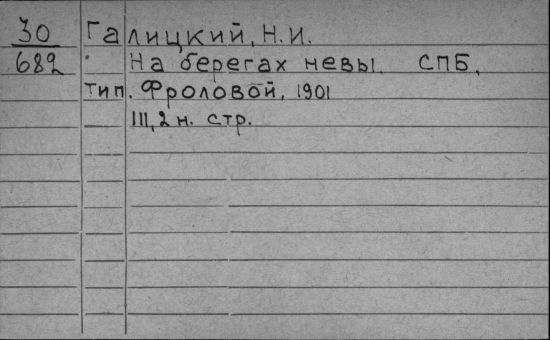 30 Галицкий, Н.И.
682 На берегах невы. СПБ,
тип. Фроловой, 1901
III, 2 н. стр.